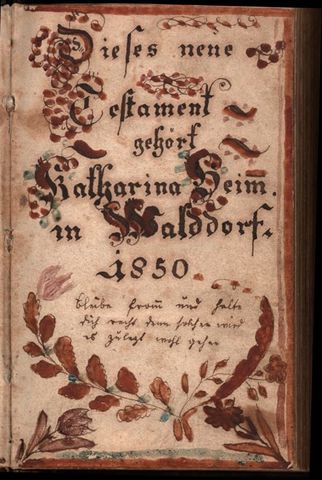 Dieses neue
Testament
gehört
Katharina Heim.
in Walddorf.
1850
bleibe from und halte
dich recht denn solchen wird
es zulezt wohl gehen